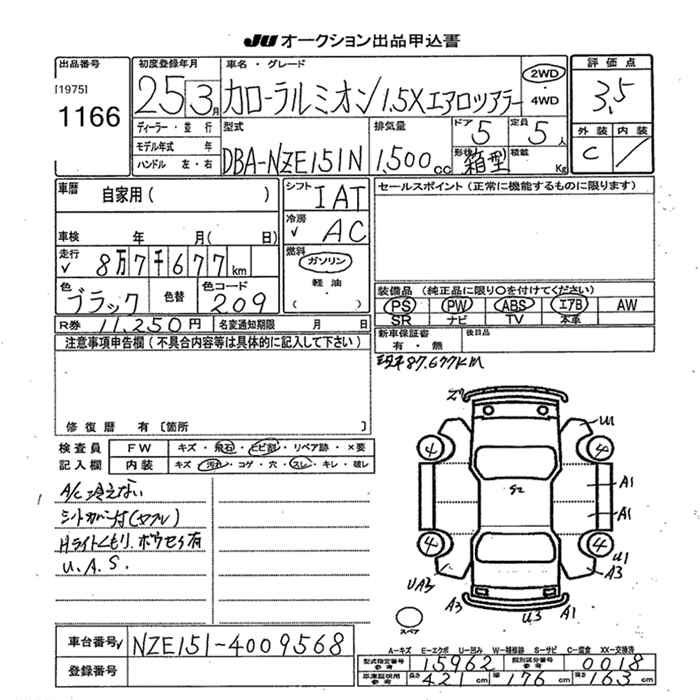 JU オークション出品申込書
出品番号 [1975] 1166
初度登録年月 25 3月
車名・グレード カローラルミオン 1.5X エアロツアラー
2WD・4WD
評価点 3.5
外装 C 内装
ディーラー・並行
モデル年式 年
ハンドル 左・右
型式 DBA-NZE151N
排気量 1,500cc
ドア 5 定員 5人
形状 箱型 積載 Kg
車歴 自家用( )
シフト IAT
セールスポイント(正常に機能するものに限ります)
車検 年 月( 日)
冷房 AC
走行 8万7千677km
燃料 ガソリン・軽油・( )
色 ブラック 色替 色コード 209
装備品(純正品に限り○を付けてください)
PS PW ABS エアB AW
SR ナビ TV 本革
R券 11,250円 名変通知期限 月 日
新車保証書 有・無 後日品
注意事項申告欄(不具合内容等は具体的に記入して下さい)
87.677KM
修復歴 有〔箇所 〕
検査員記入欄 FW キズ・飛石・ヒビ割・リペア跡・×要
内装 キズ・汚れ・コゲ・穴・スレ・キレ・破レ
A/C冷えない
シートカバー付(Wフル)
Hライトくもり. ボウセイ有
U.A.S.
U1
4 4
A1
S2
A1
4 4
U1
UA3 A3
A3 U3 A1
スペア
車台番号 NZE151-4009568
登録番号
A-キズ E-エクボ U-凹み W-補修跡 S-サビ C-腐食 XX-交換済
型式指定番号 参考 15962 類別区分番号 参考 0018
車庫証明用 参考 長さ 421cm 幅 176cm 高さ 163cm